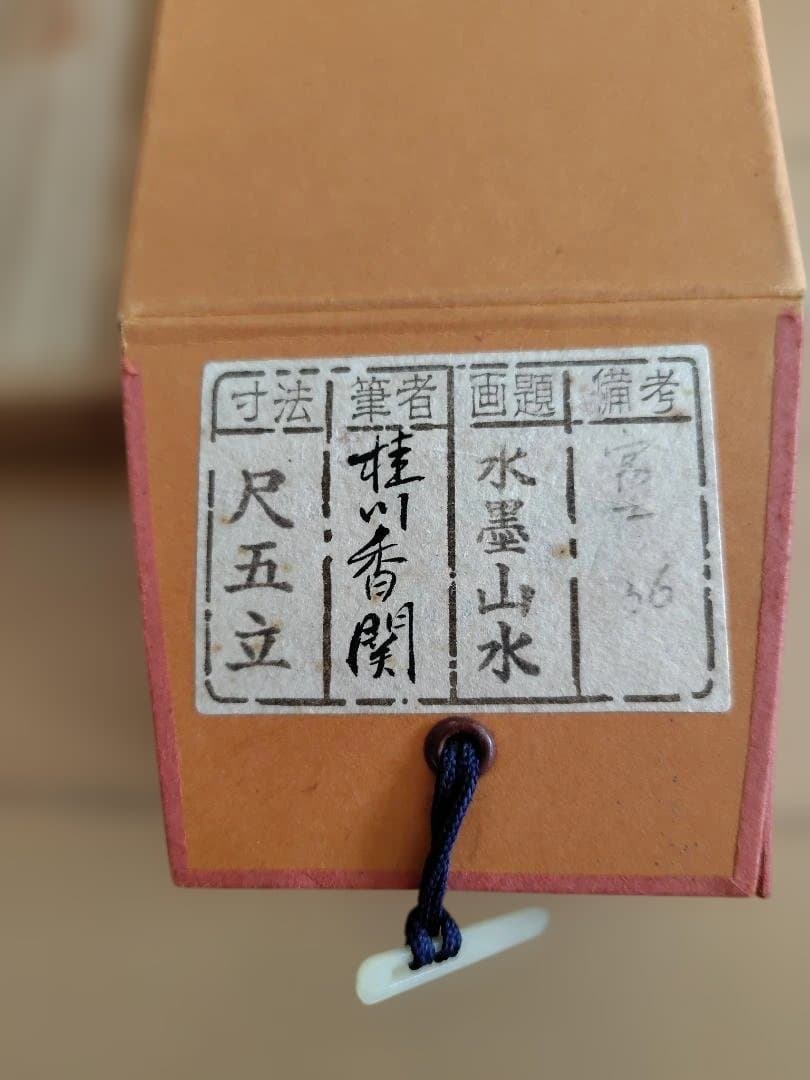 備考
画題
水墨山水
筆者
桂川香関
寸法
尺五立
36